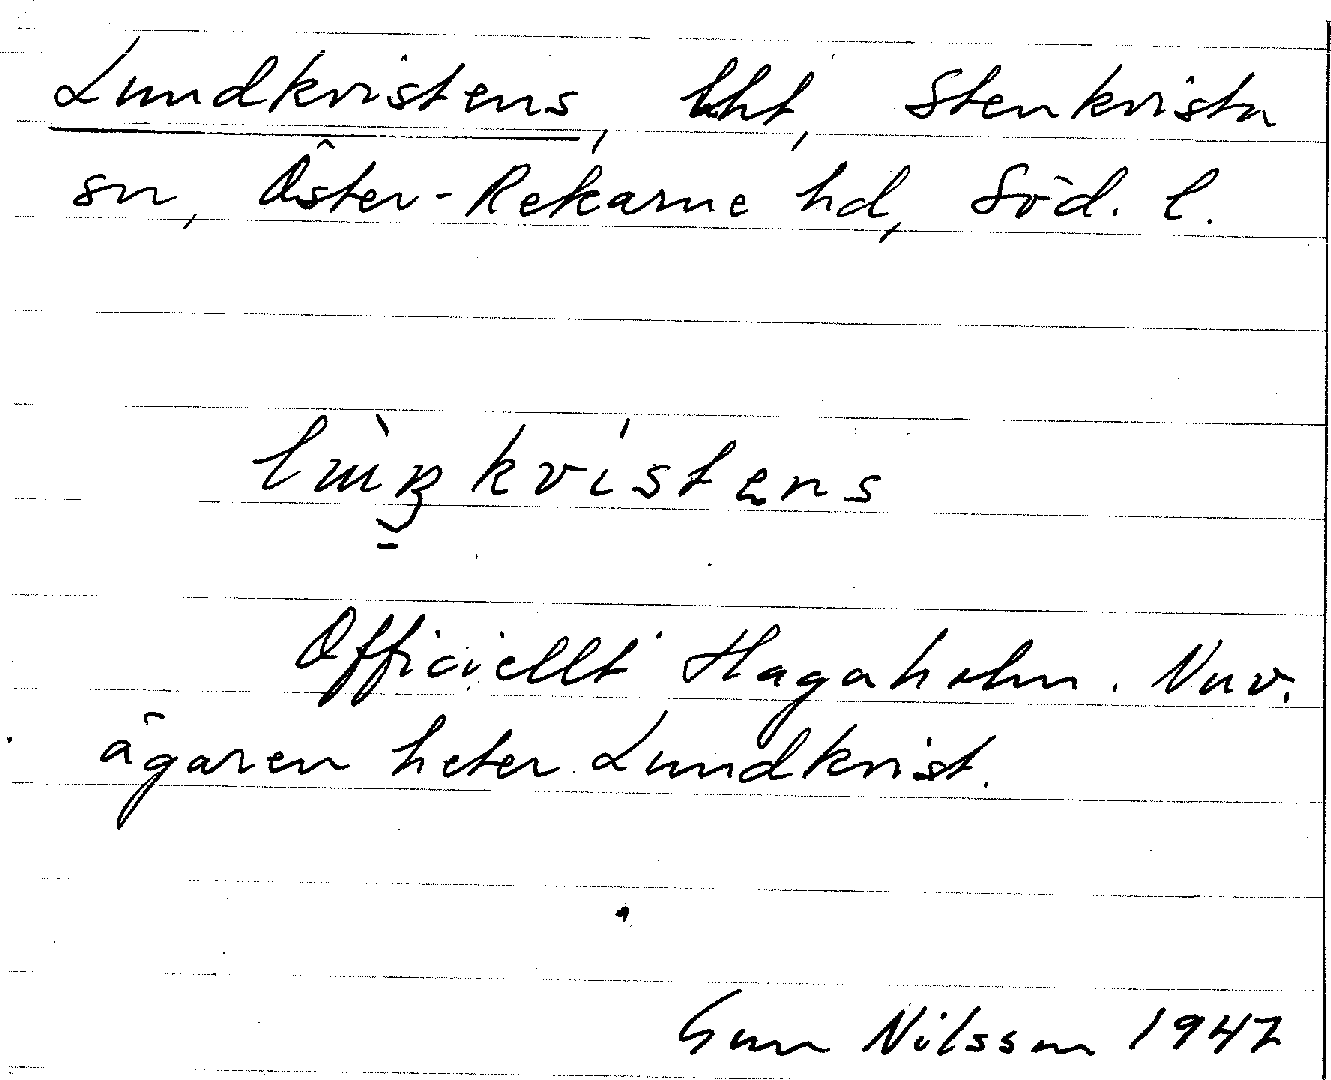 Lundkvistens, lht, Stenkvista
sn, Öster-Rekarne hd, Söd. l.
kvistens
Officiellt Hagaholm. Nuv.
ägaren heter Lundkvist.
Gun Nilsson 1947